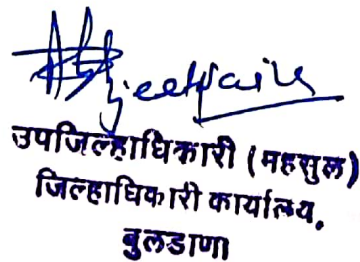 उपजिल्हाधिकारी (महसुल)
जिल्हाधिकारी कार्यालय,
बुलडाणा